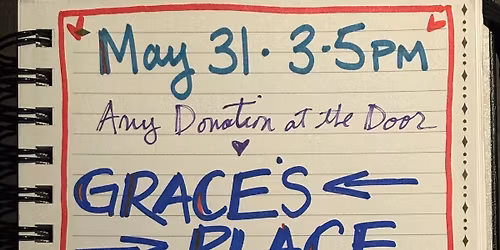 May 31 · 3-5PM
Any Donation at the Door
GRACE'S
PLACE